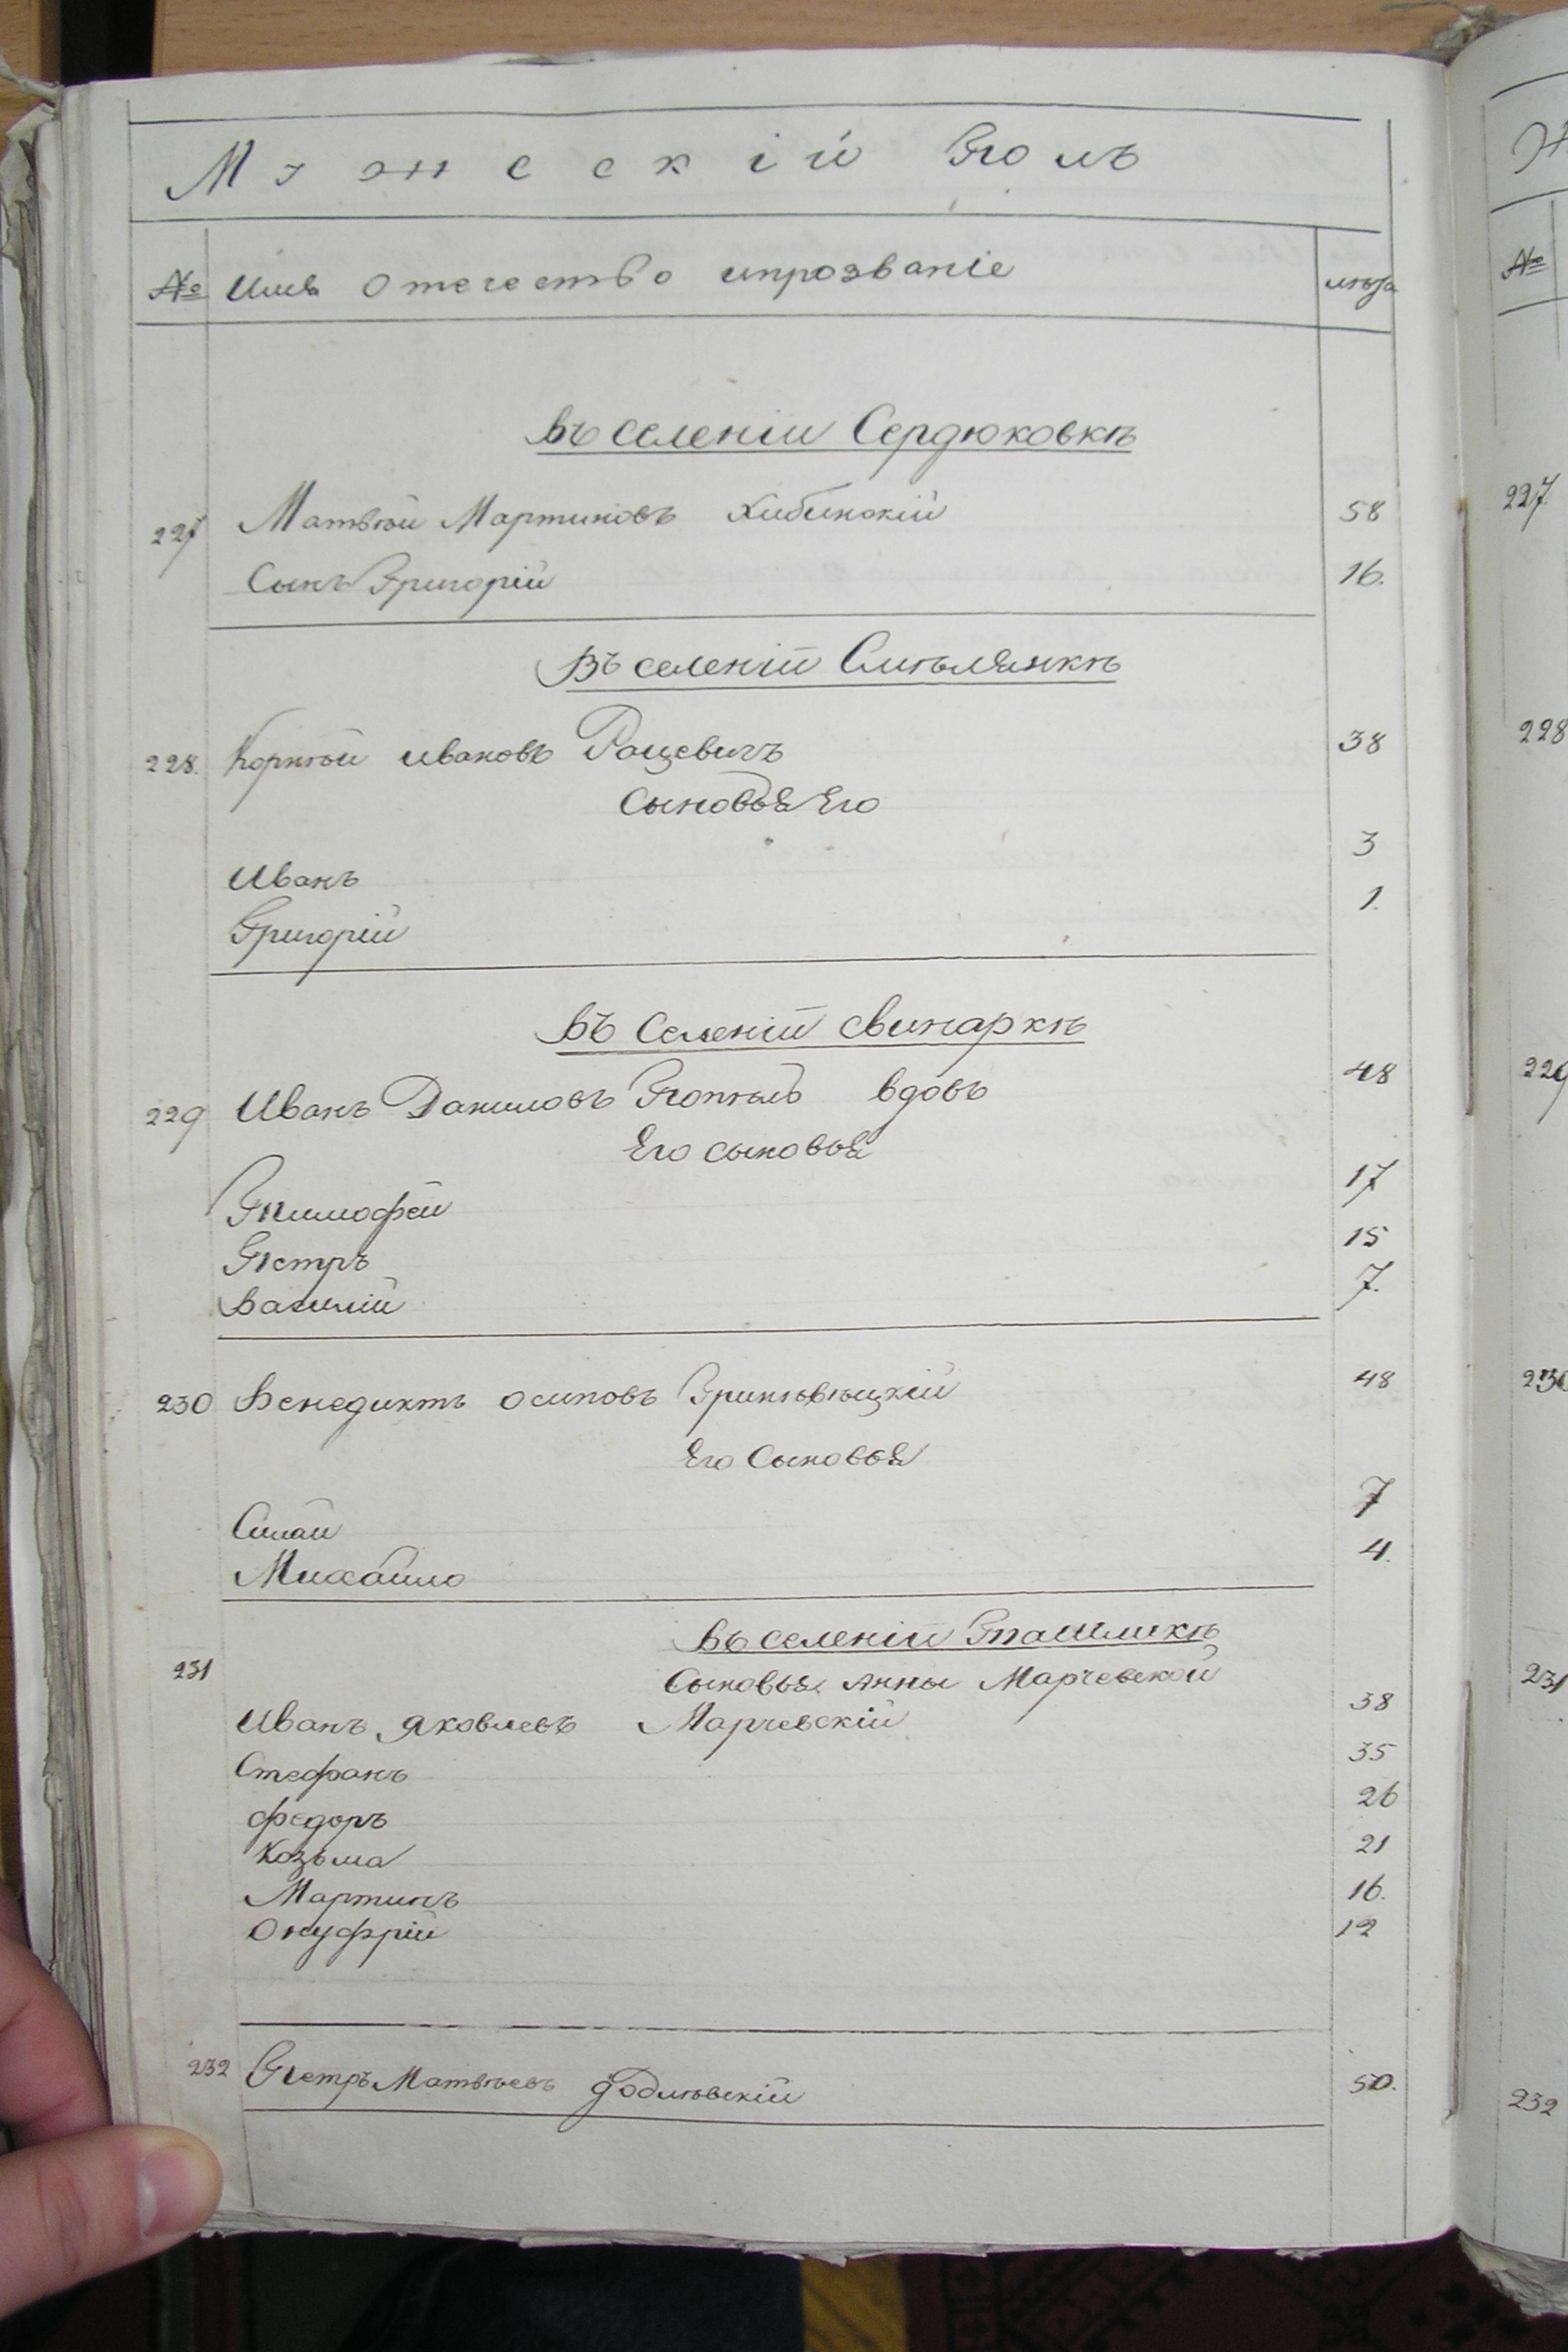 Мужескій Полъ
№ Имя Отечество ипрозваніе лѣта
Въ селеніи Сердюковкѣ
227 Матвѣй Мартиновъ Хибинскій 58
Сынъ Григорій 16.
Въ селеній Смѣлянкѣ
228. Корнѣй ивановъ Рацевичъ 38
Сыновья Его
Иванъ 3
Григорій 1.
Въ Селеній свинаркѣ
229 Иванъ Даниловъ вдовъ 48
Его сыновья
Тимофей 17
Петръ 15
Василій 7.
230 Венедиктъ осиповъ 48
Его Сыновья
7
Михайло 4.
Въ селеніи Ташликѣ
231 Сыновья Анны Марчевской
Иванъ Яковлевъ Марчевскій 38
Стефанъ 35
федоръ 26
Козьма 21
Мартинъ 16.
Онуфрій 12
232 Петръ Матвѣевъ 50.
№
227.
228
229
230
231
232